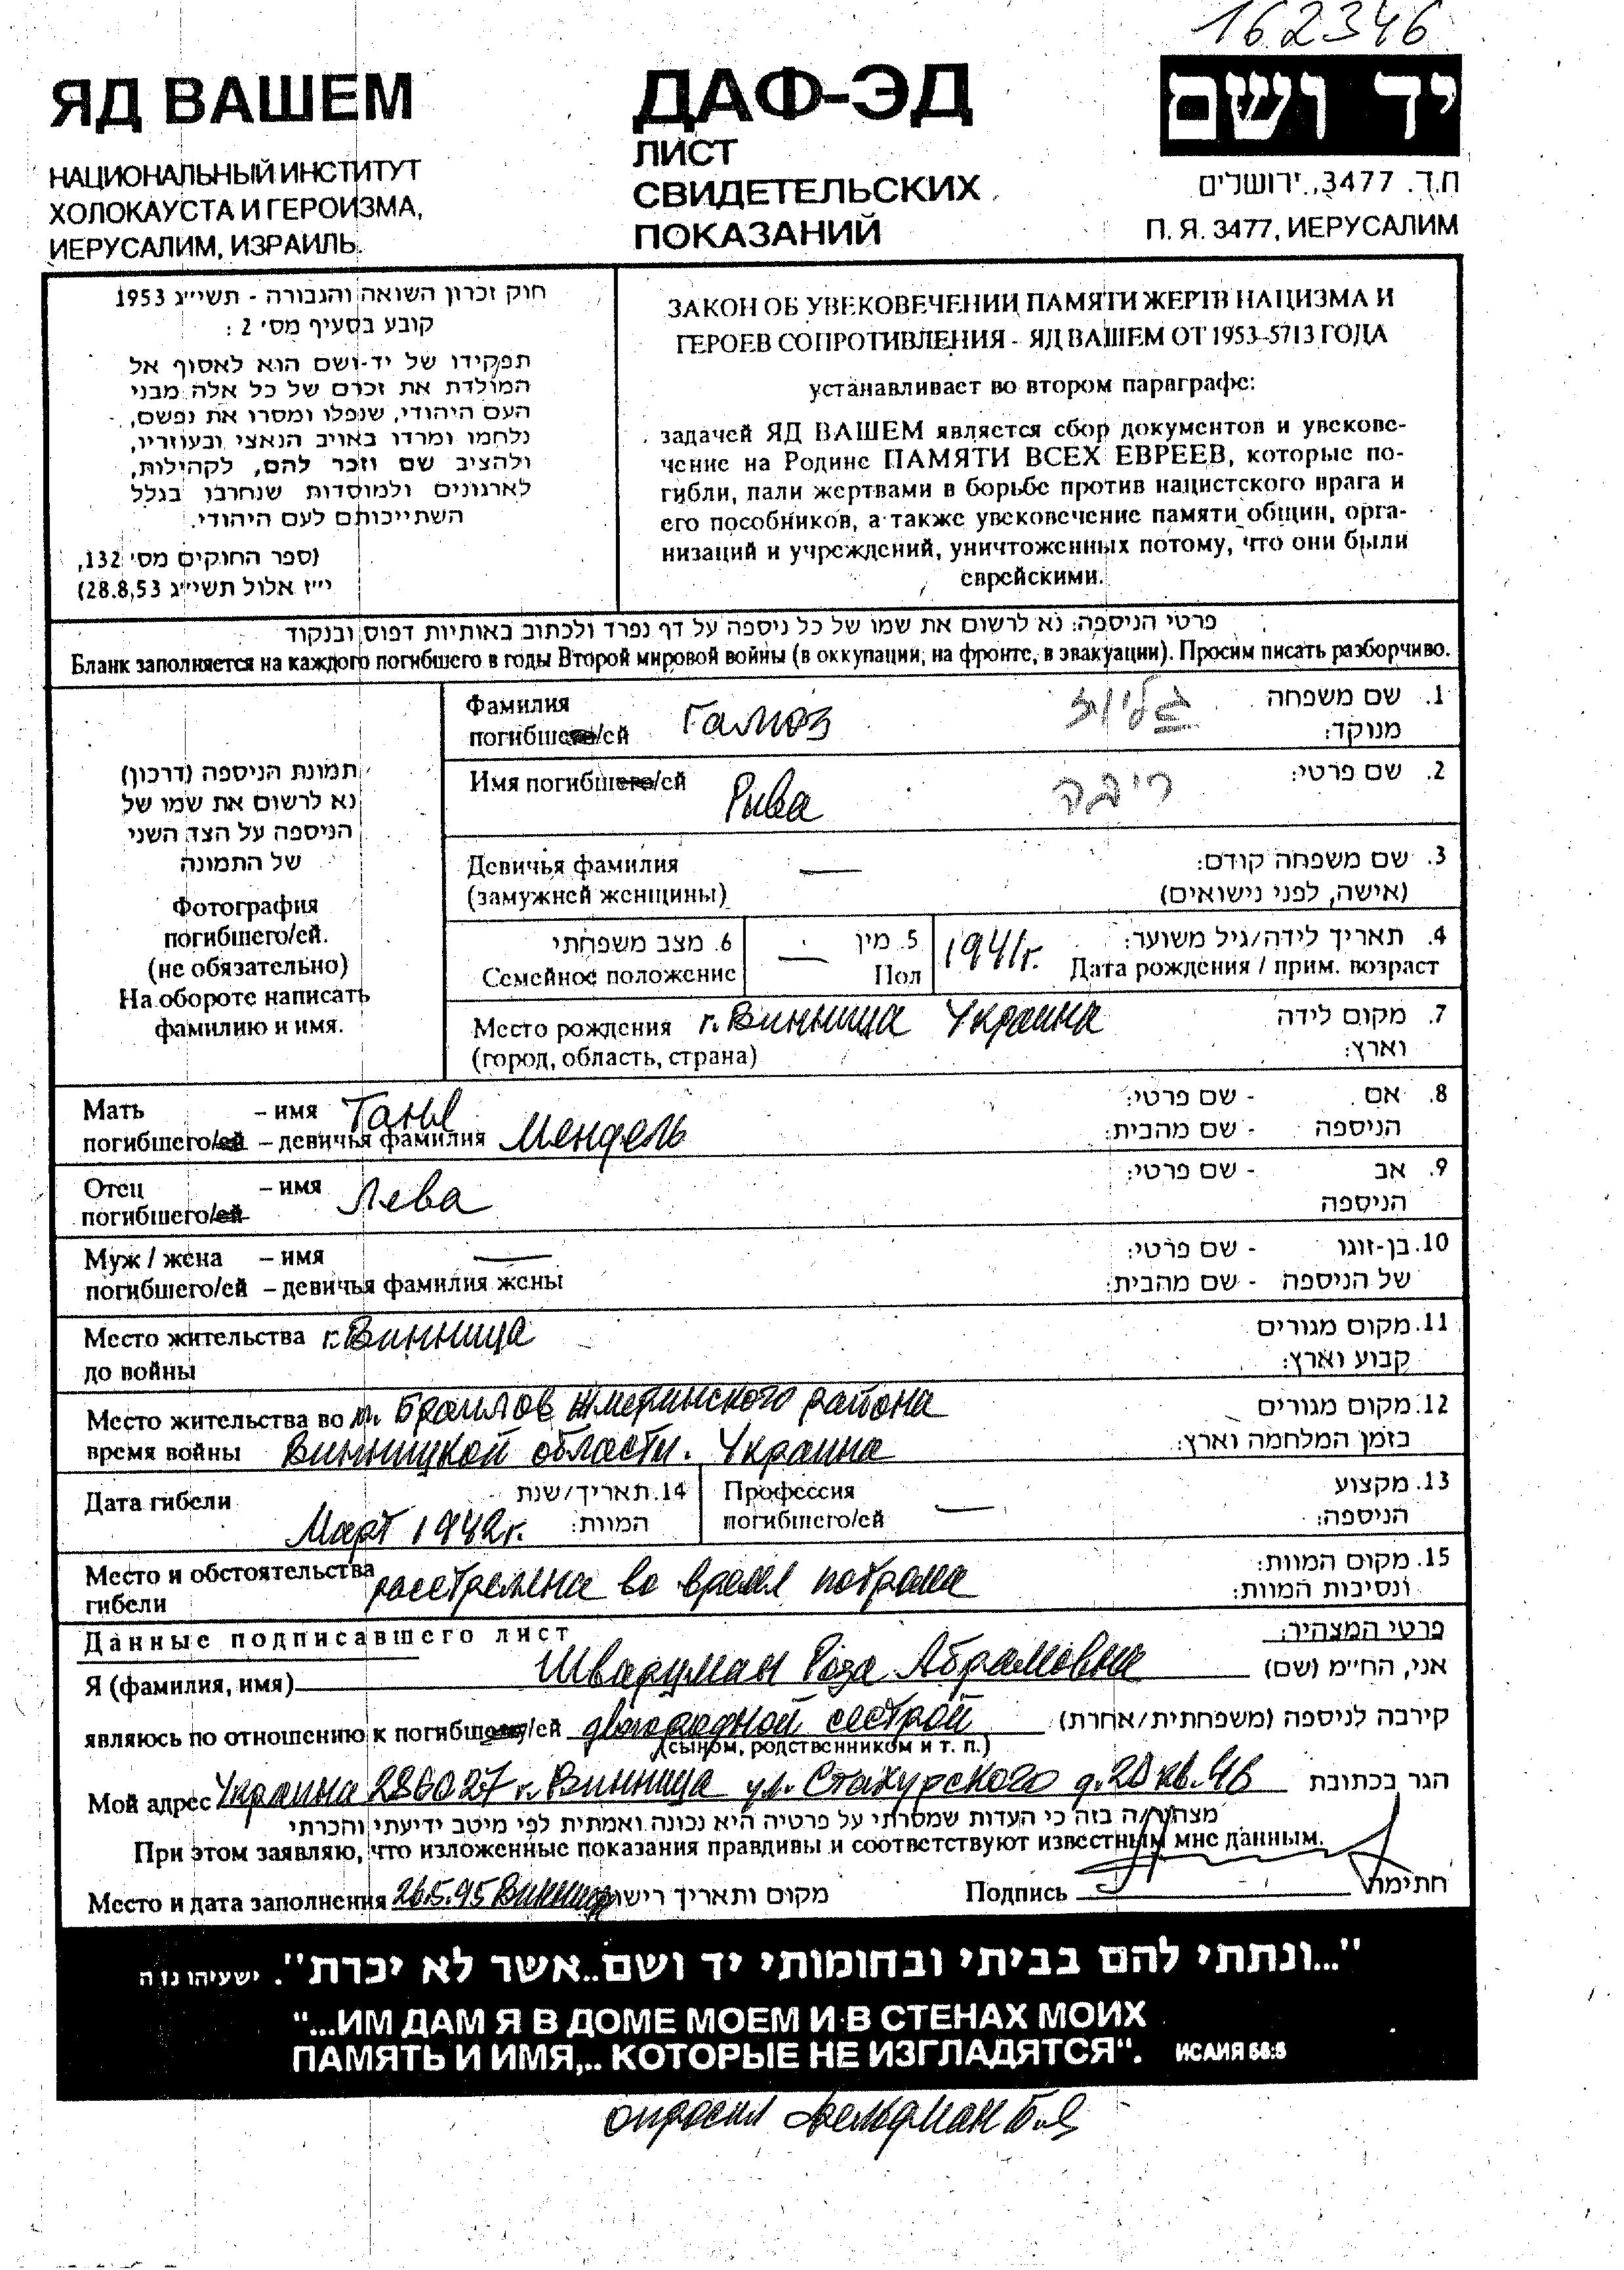 162346
ЯД ВАШЕМ
НАЦИОНАЛЬНЫЙ ИНСТИТУТ
ХОЛОКАУСТА И ГЕРОИЗМА,
ИЕРУСАЛИМ, ИЗРАИЛЬ.
ДАФ-ЭД
ЛИСТ
СВИДЕТЕЛЬСКИХ
ПОКАЗАНИЙ
יד ושם
ת.ד. 3477, ירושלים
П. Я. 3477, ИЕРУСАЛИМ
חוק זכרון השואה והגבורה - תשי״ג 1953
קובע בסעיף מס׳ 2 :
תפקידו של יד-ושם הוא לאסוף אל
המולדת את זכרם של כל אלה מבני
העם היהודי, שנפלו ומסרו את נפשם,
נלחמו ומרדו באויב הנאצי ובעוזריו,
ולהציב שם וזכר להם, לקהילות,
לארגונים ולמוסדות שנחרבו בגלל
השתייכותם לעם היהודי.
(ספר החוקים מס׳ 132,
י״ז אלול תשי״ג 28.8.53)
ЗАКОН ОБ УВЕКОВЕЧЕНИИ ПАМЯТИ ЖЕРТВ НАЦИЗМА И
ГЕРОЕВ СОПРОТИВЛЕНИЯ - ЯД ВАШЕМ ОТ 1953-5713 ГОДА
устанавливает во втором параграфе:
задачей ЯД ВАШЕМ является сбор документов и увекове-
чение на Родине ПАМЯТИ ВСЕХ ЕВРЕЕВ, которые по-
гибли, пали жертвами в борьбе против нацистского врага и
его пособников, а также увековечение памяти общин, орга-
низаций и учреждений, уничтоженных потому, что они были
еврейскими.
פרטי הניספה: נא לרשום את שמו של כל ניספה על דף נפרד ולכתוב באותיות דפוס ובנקוד
Бланк заполняется на каждого погибшего в годы Второй мировой войны (в оккупации, на фронте, в эвакуации). Просим писать разборчиво.
תמונת הניספה (דרכון)
נא לרשום את שמו של
הניספה על הצד השני
של התמונה
Фотография
погибшего/ей.
(не обязательно)
На обороте написать
фамилию и имя.
Фамилия
погибшего/ей Галюз גליוז
1. שם משפחה
מנוקד:
Имя погибшего/ей Рива ריבה 2. שם פרטי:
Девичья фамилия — 3. שם משפחה קודם:
(замужней женщины) (אישה, לפני נישואים)
6. מצב משפחתי
Семейное положение
— 5. מין
Пол
1941г.
4. תאריך לידה/גיל משוער:
Дата рождения / прим. возраст
Место рождения г. Винница Украина 7. מקום לידה
(город, область, страна) וארץ:
Мать – имя Таня 8. אם - שם פרטי:
погибшего/ей – девичья фамилия Мендель הניספה - שם מהבית:
Отец – имя Лева 9. אב - שם פרטי:
погибшего/ей הניספה
Муж / жена – имя — 10. בן-זוגו - שם פרטי:
погибшего/ей – девичья фамилия жены של הניספה - שם מהבית:
Место жительства г. Винница 11. מקום מגורים
до войны קבוע וארץ:
Место жительства во м. Браилов Жмеринского района 12. מקום מגורים
время войны Винницкой области. Украина בזמן המלחמה וארץ:
Дата гибели Март 1942г.
14. תאריך/שנת
המוות:
Профессия — 13. מקצוע
погибшего/ей הניספה:
Место и обстоятельства расстреляна во время погрома 15. מקום המוות:
гибели ונסיבות המוות:
Данные подписавшего лист פרטי המצהיר:
Я (фамилия, имя) Шварцман Роза Абрамовна אני, הח״מ (שם)
являюсь по отношению к погибшему/ей двоюродной сестрой קירבה לניספה (משפחתית/אחרת)
(сыном, родственником и т. п.)
Мой адрес Украина 286027 г. Винница ул. Стахурского д. 20 кв. 46 הגר בכתובת
מצהיר/ה בזה כי העדות שמסרתי על פרטיה היא נכונה ואמתית לפי מיטב ידיעתי והכרתי
При этом заявляю, что изложенные показания правдивы и соответствуют известным мне данным.
Место и дата заполнения 26.5.95 Винница מקום ותאריך רישום Подпись חתימה
"...ונתתי להם בביתי ובחומותי יד ושם..אשר לא יכרת". ישעיהו נו ה
"...ИМ ДАМ Я В ДОМЕ МОЕМ И В СТЕНАХ МОИХ
ПАМЯТЬ И ИМЯ,.. КОТОРЫЕ НЕ ИЗГЛАДЯТСЯ". ИСАИЯ 56:5
опросил Фельдман Б.Я